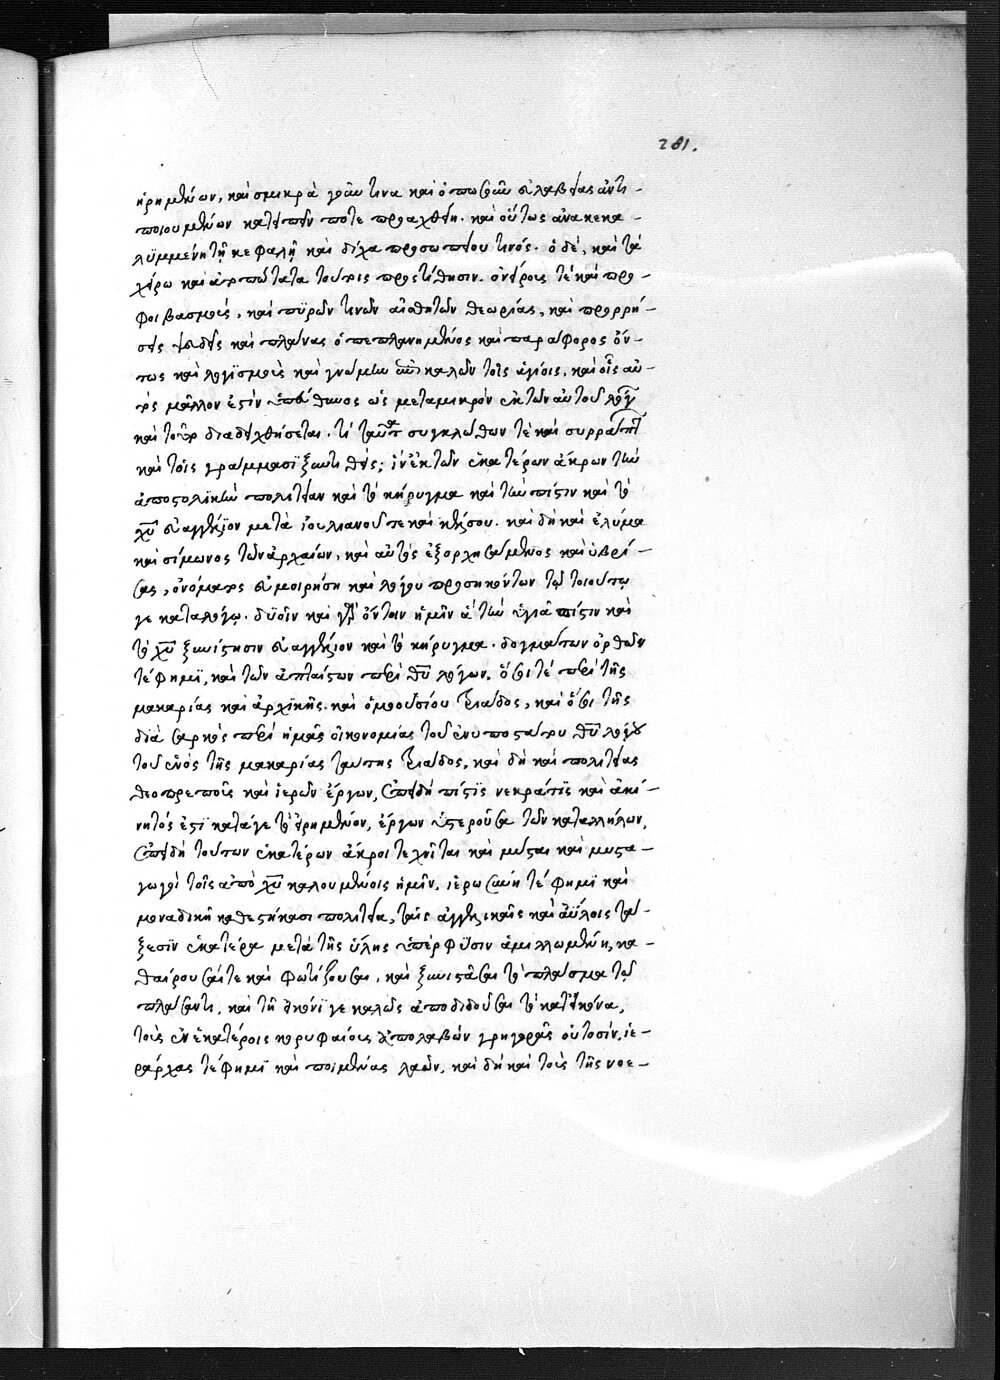 281.
ἡρημένων, καὶ σμικρὰ γοῦν τινα καὶ ὁπωσοῦν εὐλαβείας ἀντι-
ποιουμένων κατειπεῖν ποτε προαχθείη. καὶ οὕτως ἀνακεκα-
λυμμένῃ τῇ κεφαλῇ καὶ δίχα προσωπείου τινός. ὁ δὲ, καὶ τὰ
χείρω καὶ ἀτοπώτατα τούτοις προστίθησιν. ὀνείροις τὲ καὶ προ-
φοιβασμοῖς, καὶ πυρῶν τινῶν αἰσθητῶν θεωρίας, καὶ προρρή-
σεις ψευδεῖς καὶ πλάνας ὁ πεπλανημένος καὶ παράφορος ὄν-
τως καὶ λογισμοὺς καὶ γνώμην ἐγκαλῶν τοῖς ἁγίοις, καὶ οἷς αὐ-
τὸς μᾶλλον ἐστὶν ὑπεύθυνος ὡς μεταμικρὸν ἐκ τῶν αὐτοῦ λόγων
καὶ τοῦτο διαδειχθήσεται. τί ταῦτα συγκλώθων τὲ καὶ συρράπτων
καὶ τοῖς γράμμασϊ ξυντιθείς; ἵν' ἐκ τῶν ἑκατέρων ἄκρων τὴν
ἀποστολικὴν πολιτείαν καὶ τὸ κήρυγμα καὶ τὴν πίστιν καὶ τὸ
χυ εὐαγγέλϊον μετὰ ἰουλιανοῦ τε καὶ κέλσου. καὶ δὴ καὶ ἐλύμα
καὶ σίμωνος τῶν ἀρχαίων, καὶ αὐτὸς ἐξορχησάμενος καὶ ὑβρί-
σας, ὀνόματος εὐμοιρήσῃ καὶ λόγου προσηκόντων τῷ τοιούτῳ
γε καταλόγῳ. δυοῖν καὶ γὰρ ὄντοιν ἡμῖν ἃ τὴν ὑγιᾶ πίστιν καὶ
τὸ χυ ξυνίστησιν εὐαγγέλιον καὶ τὸ κήρυγμα. δογμάτων ὀρθῶν
τέ φημϊ, καὶ τῶν ἀπταίστων περὶ θυ λόγων, ὅσοι τὲ περὶ τῆς
μακαρίας καὶ ἀρχικῆς. καὶ ὁμοουσίου τριάδος, καὶ ὅσοι τῆς
διὰ σαρκὸς περὶ ἡμᾶς οἰκονομίας τοῦ ἐνυποστάτου θυ λόγου
τοῦ ἑνὸς τῆς μακαρίας ταύτης τριάδος, καὶ δὴ καὶ πολιτείας
θεοπρεποῦς καὶ ἱερῶν ἔργων, ἐπειδὴ πίστϊς νεκρά τϊς καὶ ἀκί-
νητός ἐστϊ κατάγε τὸ εἰρημένον, ἔργων ὑστεροῦσα τῶν καταλλήλων,
ἐπειδὴ τούτων ἑκατέρων ἄκροι τεχνῖται καὶ μύσται καὶ μυστα-
γωγοὶ τοῖς ἀπὸ χυ καλουμένοις ἡμῖν, ἱερωσύνη τέ φημϊ καὶ
μοναδικὴ καθεστήκασι πολιτεία, ταῖς ἀγγελικαῖς καὶ ἀΰλοις τά-
ξεσϊν ἑκατέρα μετὰ τῆς ὕλης ὑπὲρ φύσιν ἁμιλλωμένη, κα-
θαίρουσαί τε καὶ φωτίζουσαι, καὶ ξυνιστᾶσαι τὸ πλάσμα τῷ
πλάσαντι, καὶ τῇ εἰκόνϊ γε καλῶς ἀποδιδοῦσαι τὸ κατ' εἰκόνα,
τοὺς ἐν ἑκατέροις κορυφαίους ἀπολαβὼν γρηγορᾶς οὑτοσὶν, ἱε-
ράρχας τέ φημϊ καὶ ποιμένας λαῶν, καὶ δὴ καὶ τοὺς τῆς νοε-